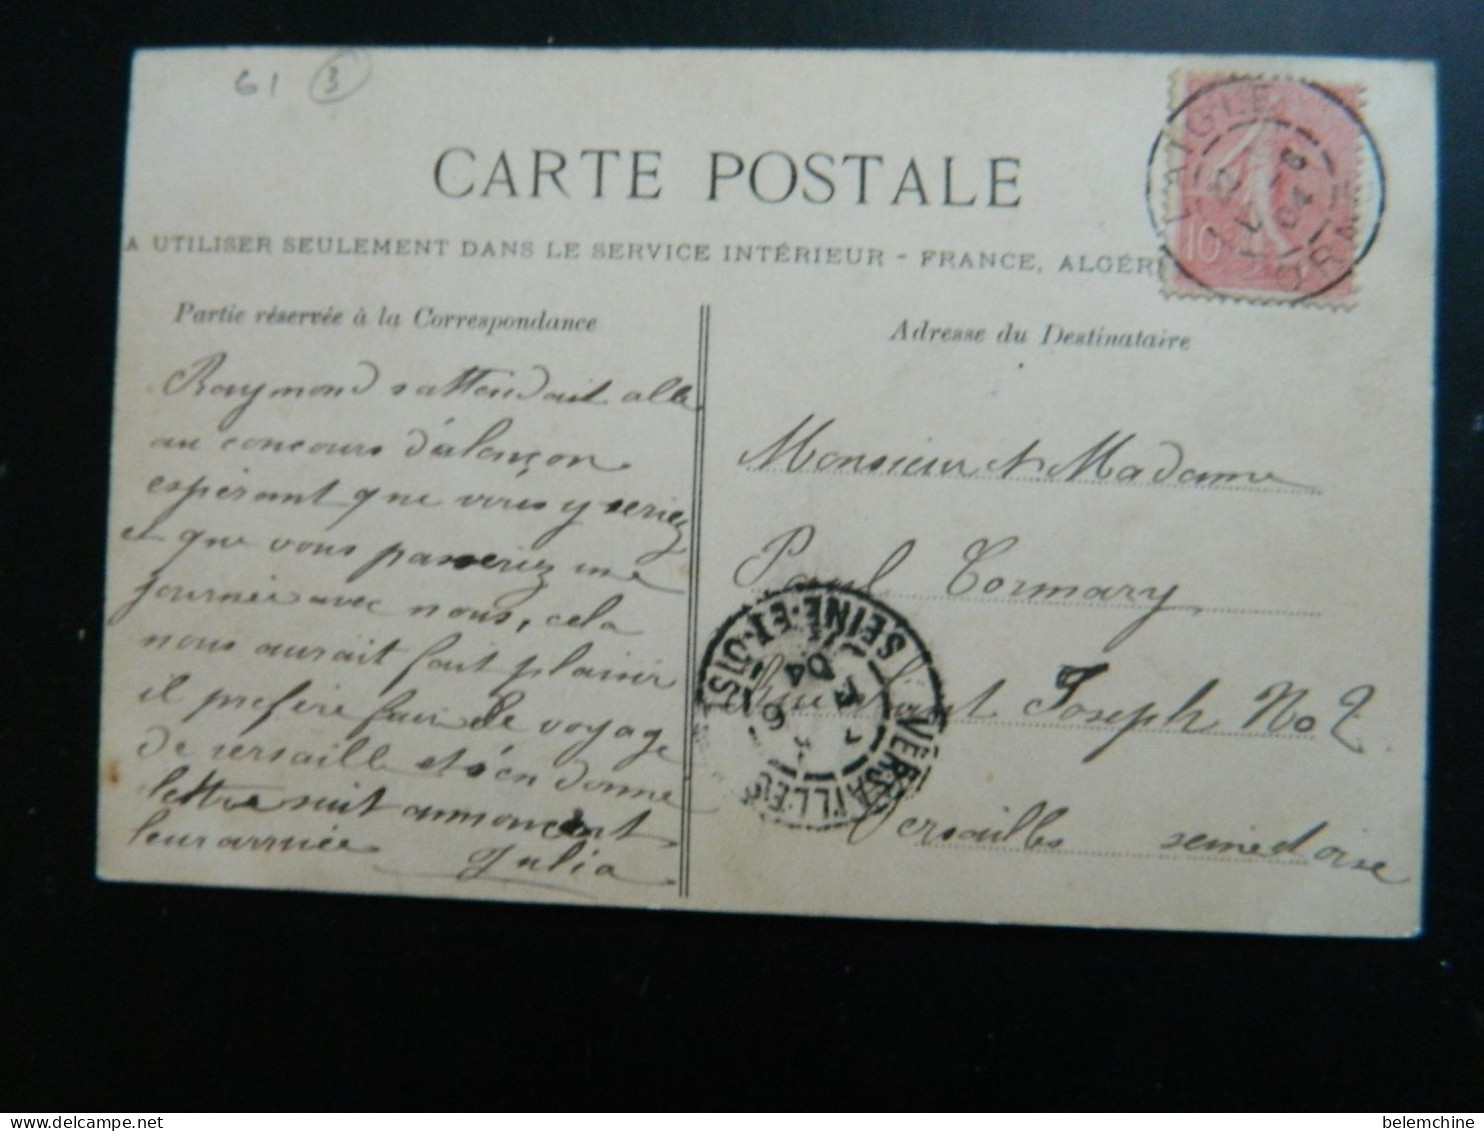 61 3
CARTE POSTALE
A UTILISER SEULEMENT DANS LE SERVICE INTÉRIEUR - FRANCE, ALGÉR
LAIGLE
ORNE
10
Partie réservée à la Correspondance
Raymond sattendait alle
au concours d'alençon
espérant que vous y seriez
et que vous passeriez une
journée avec nous, cela
nous aurait fait plaisir
il prefère faire le voyage
de versaille et s'en donne
lettre suit annoncent
leur arrivée Julia
Adresse du Destinataire
Monsieur et Madame
Paul Cormary
Joseph No 2
Versailles seine d oise
VERSAILLES
SEINE-ET-OISE
belemchine